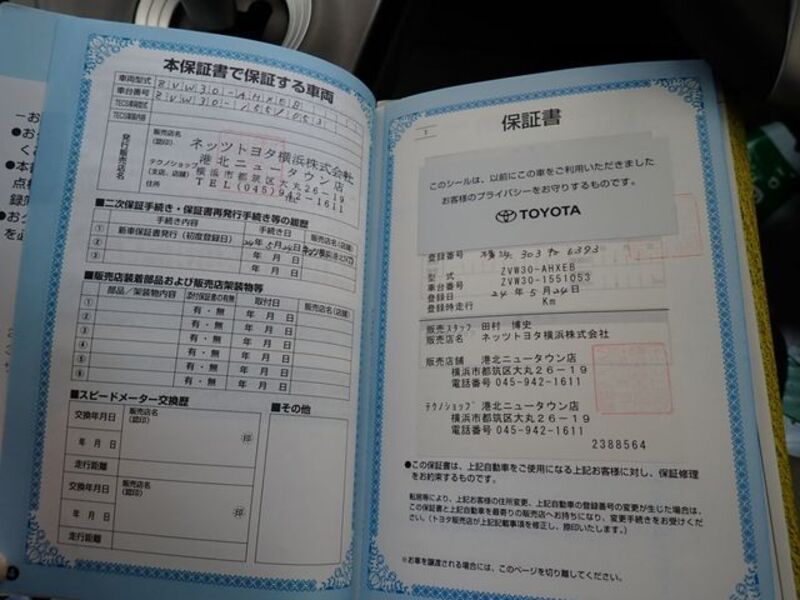 本保証書で保証する車両
車両型式 ZVW30-AHXEB
車台番号 ZVW30-1551053
発行販売店名
販売店名
(認印)
ネッツトヨタ横浜株式会社
港北ニュータウン店
テクノショップ
(支店、店舗)
横浜市都筑区大丸26-19
住所
TEL(045)942-1611
■二次保証手続き・保証書再発行手続き等の履歴
手続き内容 手続き日 販売店名(店舗)
① 新車保証書発行(初度登録日) 24年5月24日
② 年 月 日
③ 年 月 日
■販売店装着部品および販売店架装物等
部品/架装物内容 添付保証書の有無 取付日 販売店名(店舗)
① 有・無 年 月 日
② 有・無 年 月 日
③ 有・無 年 月 日
④ 有・無 年 月 日
⑤ 有・無 年 月 日
⑥ 有・無 年 月 日
■スピードメーター交換歴
■その他
交換年月日 販売店名
(認印)
年 月 印
走行距離
交換年月日 販売店名
(認印)
年 月 印
走行距離
保証書
このシールは、以前にこの車をご利用いただきました
お客様のプライバシーをお守りするものです。
TOYOTA
登録番号 303 6393
型式 ZVW30-AHXEB
車台番号 ZVW30-1551053
登録日 24年5月24日
登録時走行 Km
販売スタッフ 田村 博史
販売店名 ネッツトヨタ横浜株式会社
販売店舗 港北ニュータウン店
横浜市都筑区大丸26-19
電話番号 045-942-1611
テクノショップ 港北ニュータウン店
横浜市都筑区大丸26-19
電話番号 045-942-1611
2388564
●この保証書は、上記自動車をご使用になる上記お客様に対し、保証修理
をお約束するものです。
転居等により、上記お客様の住所変更、上記自動車の登録番号の変更が生じた場合は、
この保証書と上記自動車を最寄りの販売店へお持ちになり、変更手続きをお受けくだ
さい。(トヨタ販売店が上記記載事項を修正し、捺印いたします。)
※お車を譲渡される場合には、このページを切り離してください。